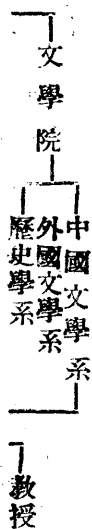 文學院
中國文學系
外國文學系
歷史學系
教授